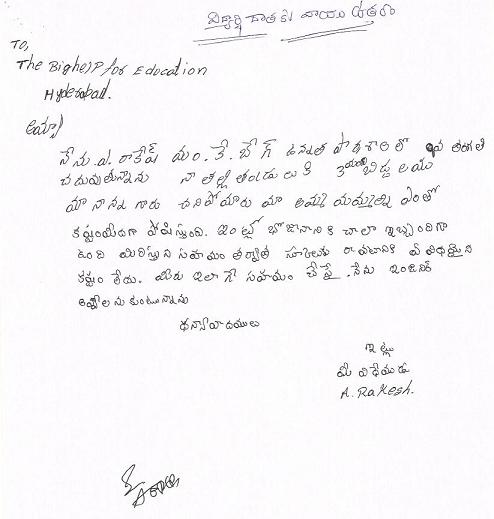 విద్యార్థి దాతకు వ్రాయు లేఖ
To,
The Bighelp for Education
Hyderabad.
అయ్యా
నేను.ఎ. రాకేష్ యం. కే. బేగ్ ఉన్నత పాఠశాల లో 9వ తరగతి
చదువుతున్నాను నా తల్లి తండ్రులు కి 3 బిడ్డలము
మా నాన్న గారు చనిపోయారు మా అమ్మ మమ్మల్ని ఎంతో
కష్టంగా పోషిస్తుంది. ఇంట్లో భోజనానికి చాలా ఇబ్బందిగా
ఉంది మీరిస్తున్న సహాయం తర్వాత స్కూలుకు రావటానికి ఏ విధమైన
కష్టం లేదు. మీరు ఇలాగే సహాయం చేస్తే. నేను ఇంజనీర్
అవ్వాలనుకుంటున్నాను
ధన్యవాదములు
ఇట్లు
మీ విధేయుడు
A. Rakesh.